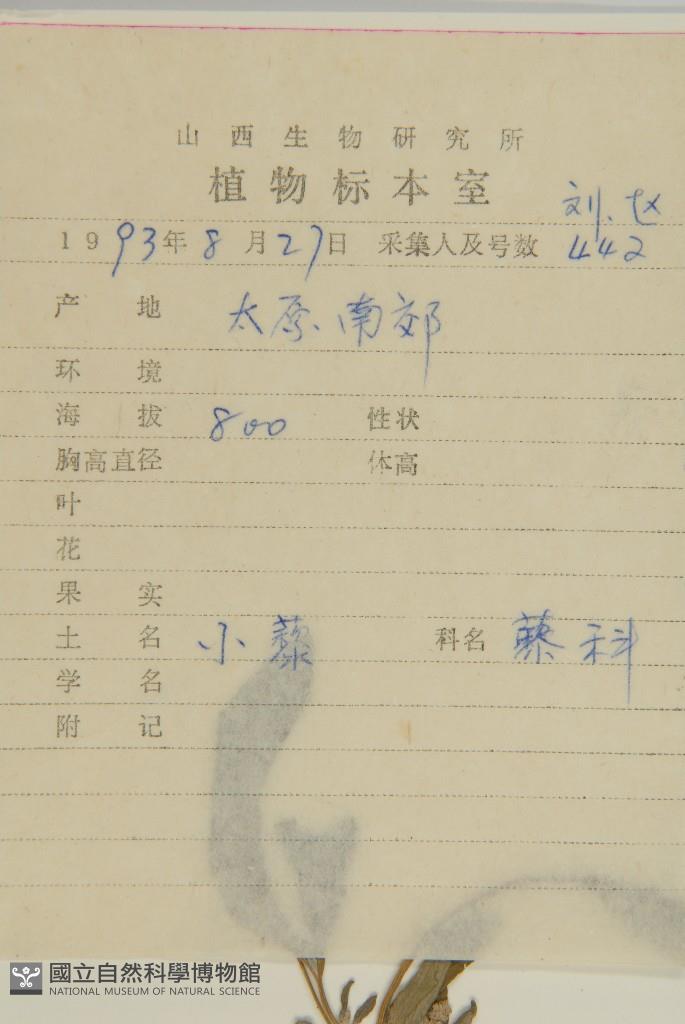 山西生物研究所
植物标本室
刘、赵
1993年8月27日 采集人及号数 442
产地 太原、南郊
环境
海拔 800 性状
胸高直径 体高
叶
花
果实
土名 小藜 科名 藜科
学名
附记
國立自然科學博物館
NATIONAL MUSEUM OF NATURAL SCIENCE